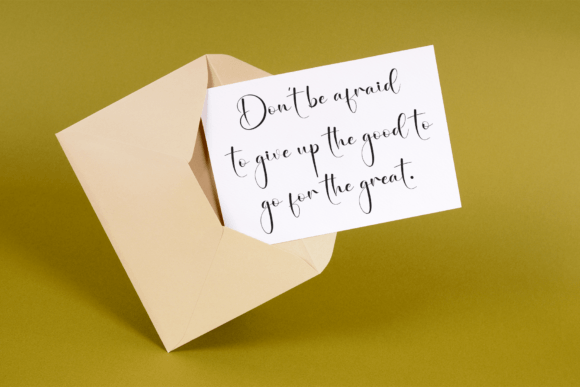 Don't be afraid
to give up the good to
go for the great.